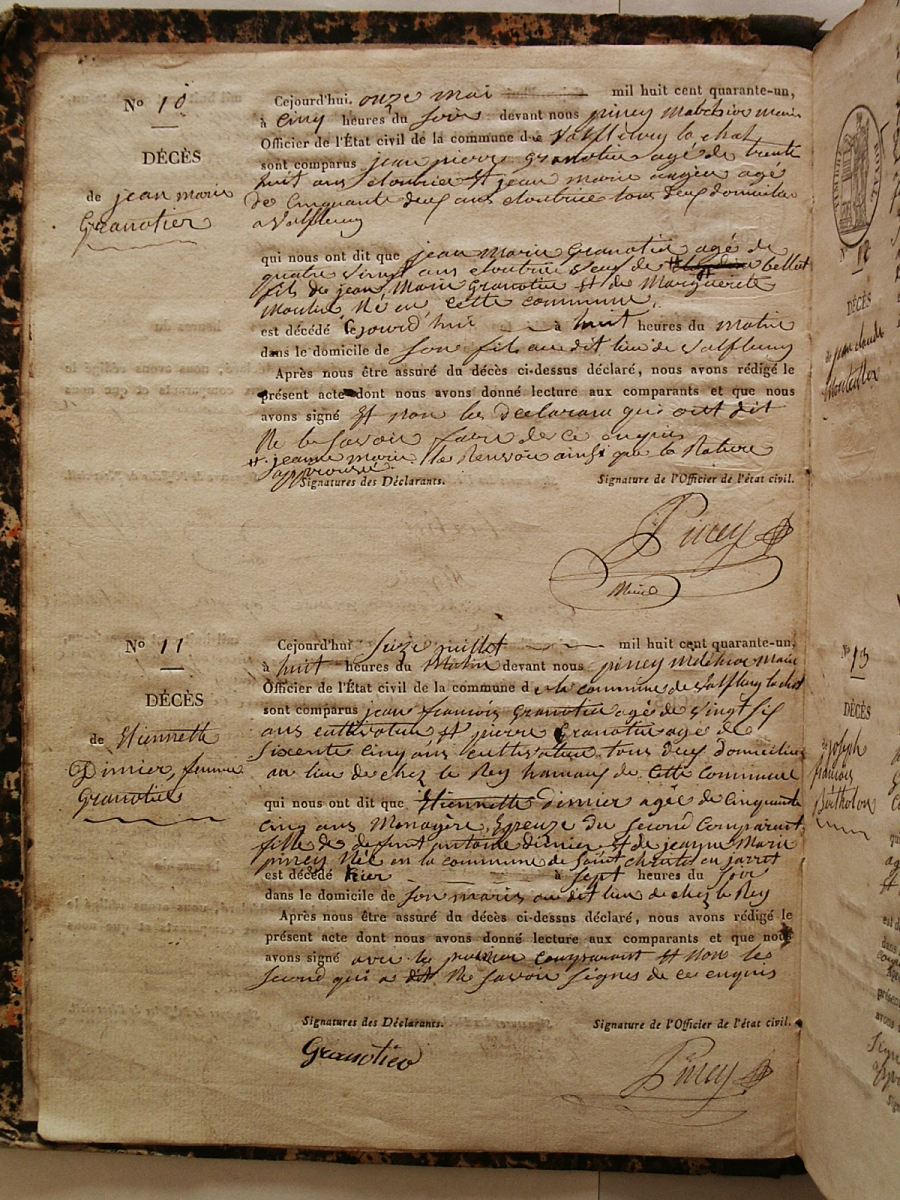 N° 10
DÉCÈS
de jean marie
Granotier
Cejourd'hui onze mai mil huit cent quarante-un,
à cinq heures du soir devant nous piney melchior maire
Officier de l'État civil de la commune de Valfleury la chat
sont comparus jean pierre granotier agé de trente
huit ans cloutrier et jean marie agé
de cinquante deux ans cloutrier tous deux domicilies
a Valfleury
qui nous ont dit que jean Marie Granotier agé de
quatre vingt ans cloutrie veuf de bellet
fils de jean Marie Granotier et de Marguerite
Moulin Né en cette commune
est décédé cejourd'hui à huit heures du matin
dans le domicile de son fils au dit lieu de Valfleury
Après nous être assuré du décès ci-dessus déclaré, nous avons rédigé le
présent acte dont nous avons donné lecture aux comparants et que nous
avons signé et non les declarans qui ont dit
Ne le savoir faire de ce enquis
jeanne marie le Renvoie ainsi que la Rature
approuvé
Signatures des Déclarants. Signature de l'Officier de l'état civil.
Piney
Maire
N° 11
DÉCÈS
de Etiennette
Dimier, femme
Granotier
Cejourd'hui seize juillet mil huit cent quarante-un,
à huit heures du Matin devant nous piney melchior maire
Officier de l'État civil de la commune d e la commune de Valfleury la chat
sont comparus jean francois Granotier agé de vingt six
ans cultivateur et pierre Granotier agé de
soixente cinq ans cultivateur tous deux domicilies
au lieu de chez le Rey hameau de Cette Commune
qui nous ont dit que Etiennette dimier agée de cinquante
cinq ans Menagère, Epeuze du second Comparant,
fille de defunt antoine dimier et de jeanne Marie
piney Née en la commune de saint christo en jarret
est décédé hier à sept heures du soir
dans le domicile de son maris au dit lieu de chez le Rey
Après nous être assuré du décès ci-dessus déclaré, nous avons rédigé le
présent acte dont nous avons donné lecture aux comparants et que nous
avons signé avec le premier comparant et non le
second qui a dit Ne savoir signer de ce enquis
Signatures des Déclarants. Signature de l'Officier de l'état civil.
Granotier
Piney
N° 12
DÉCÈS
de jean claude
N° 13
DÉCÈS
de joseph
francois
Bertholon